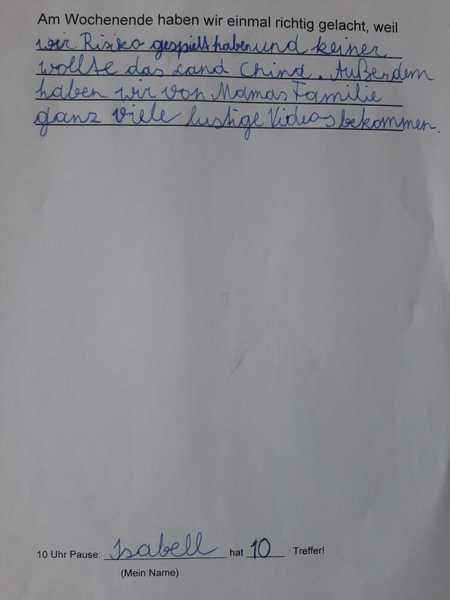 Am Wochenende haben wir einmal richtig gelacht, weil
wir Risiko gespielt haben und keiner
wollte das Land China. Außerdem
haben wir von Mamas Familie
ganz viele lustige Videos bekommen.
10 Uhr Pause: Isabell hat 10 Treffer!
(Mein Name)